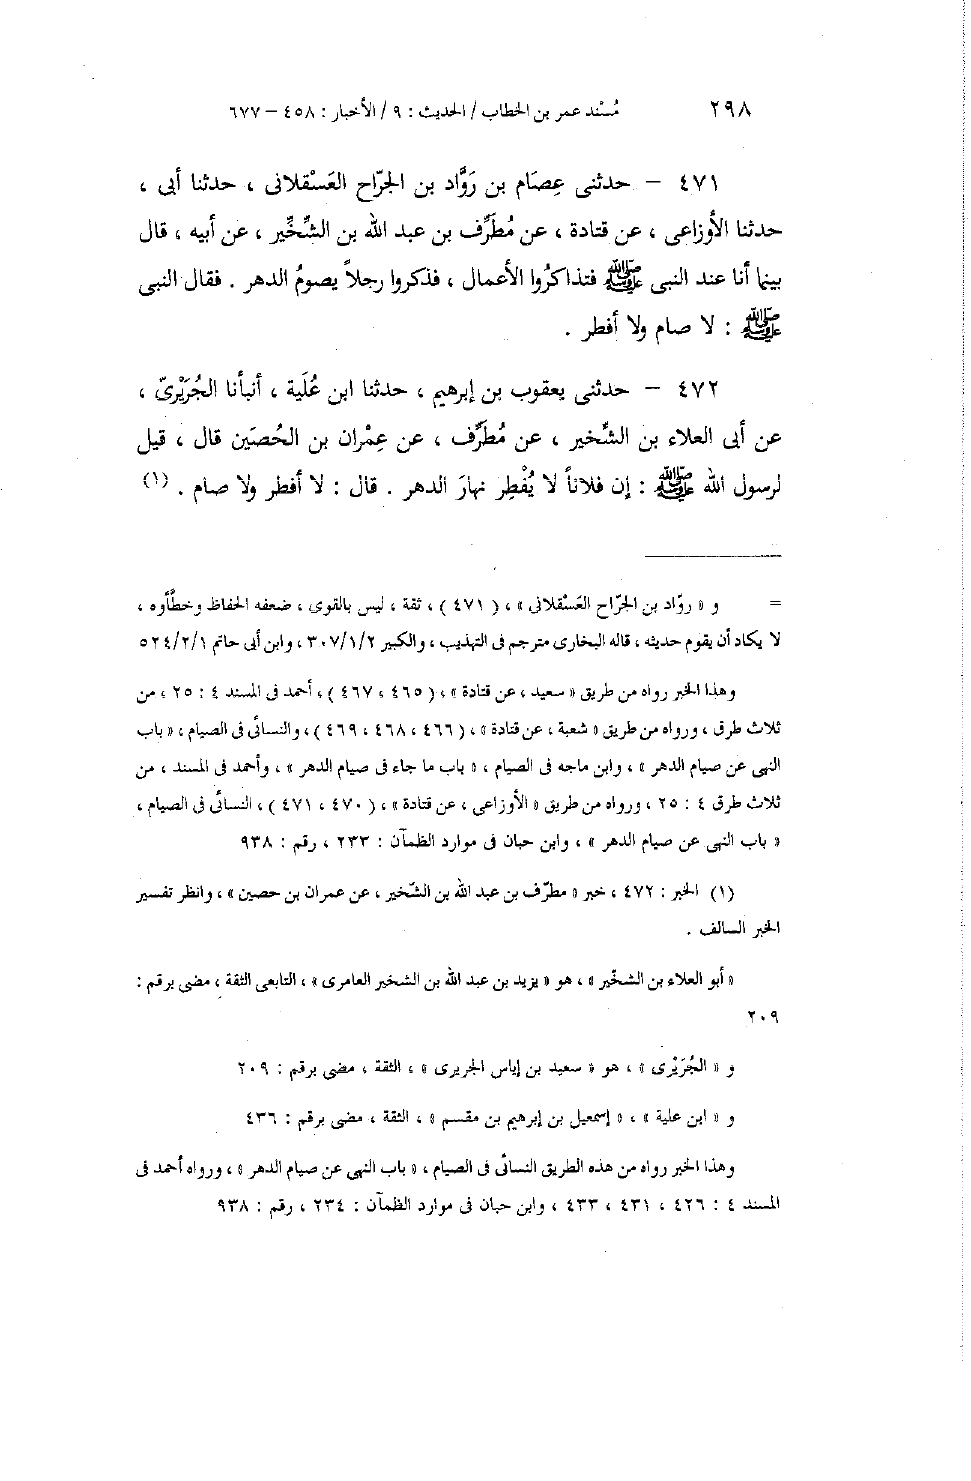 ٢٩٨ مُسْند عمر بن الخطاب / الحديث : ٩ / الأخبار : ٤٥٨ – ٦٧٧
٤٧١ – حدثنى عِصَام بن رَوَّاد بن الجرّاح العَسْقلانى ، حدثنا أبى ،
حدثنا الأوزاعى ، عن قتادة ، عن مُطَرِّف بن عبد الله بن الشِّخِّير ، عن أبيه ، قال
بينما أنا عند النبى ﷺ فتذاكرُوا الأعمال ، فذكروا رجلاً يصومُ الدهر . فقال النبى
ﷺ : لا صام ولا أفطر .
٤٧٢ – حدثنى يعقوب بن إبرهيم ، حدثنا ابن عُلَية ، أنبأنا الجُرَيْرىّ ،
عن أبى العلاء بن الشِّخير ، عن مُطَرِّف ، عن عِمْران بن الحُصَين قال ، قيل
لرسول الله ﷺ : إن فلاناً لا يُفْطِر نهارَ الدهر . قال : لا أفطر ولا صام . (١)
= و « روّاد بن الجرّاح العَسْقلانى » ، ( ٤٧١ ) ، ثقة ، ليس بالقوى ، ضعفه الحفاظ وخطَّأوه ،
لا يكاد أن يقوم حديثه ، قاله البخارى مترجم فى التهذيب ، والكبير ٣٠٧/١/٢ ، وابن أبى حاتم ٥٢٤/٢/١
وهذا الخبر رواه من طريق « سعيد ، عن قتادة » ، ( ٤٦٥ ، ٤٦٧ ) ، أحمد فى المسند ٤ : ٢٥ ، من
ثلاث طرق ، ورواه من طريق « شعبة ، عن قتادة » ، ( ٤٦٦ ، ٤٦٨ ، ٤٦٩ ) ، والنسائى فى الصيام ، « باب
النهى عن صيام الدهر » ، وابن ماجه فى الصيام ، « باب ما جاء فى صيام الدهر » ، وأحمد فى المسند ، من
ثلاث طرق ٤ : ٢٥ ، ورواه من طريق « الأوزاعى ، عن قتادة » ، ( ٤٧٠ ، ٤٧١ ) ، النسائى فى الصيام ،
« باب النهى عن صيام الدهر » ، وابن حبان فى موارد الظمآن : ٢٣٣ ، رقم : ٩٣٨
(١) الخبر : ٤٧٢ ، خبر « مطرّف بن عبد الله بن الشّخير ، عن عمران بن حصين » ، وانظر تفسير
الخبر السالف .
« أبو العلاء بن الشخّير » ، هو « يزيد بن عبد الله بن الشخير العامرى » ، التابعى الثقة ، مضى برقم :
٢٠٩
و « الجُرَيْرى » ، هو « سعيد بن إياس الجريرى » ، الثقة ، مضى برقم : ٢٠٩
و « ابن علية » ، « إسمعيل بن إبرهيم بن مقسم » ، الثقة ، مضى برقم : ٤٣٦
وهذا الخبر رواه من هذه الطريق النسائى فى الصيام ، « باب النهى عن صيام الدهر » ، ورواه أحمد فى
المسند ٤ : ٤٢٦ ، ٤٣١ ، ٤٣٣ ، وابن حبان فى موارد الظمآن : ٢٣٤ ، رقم : ٩٣٨